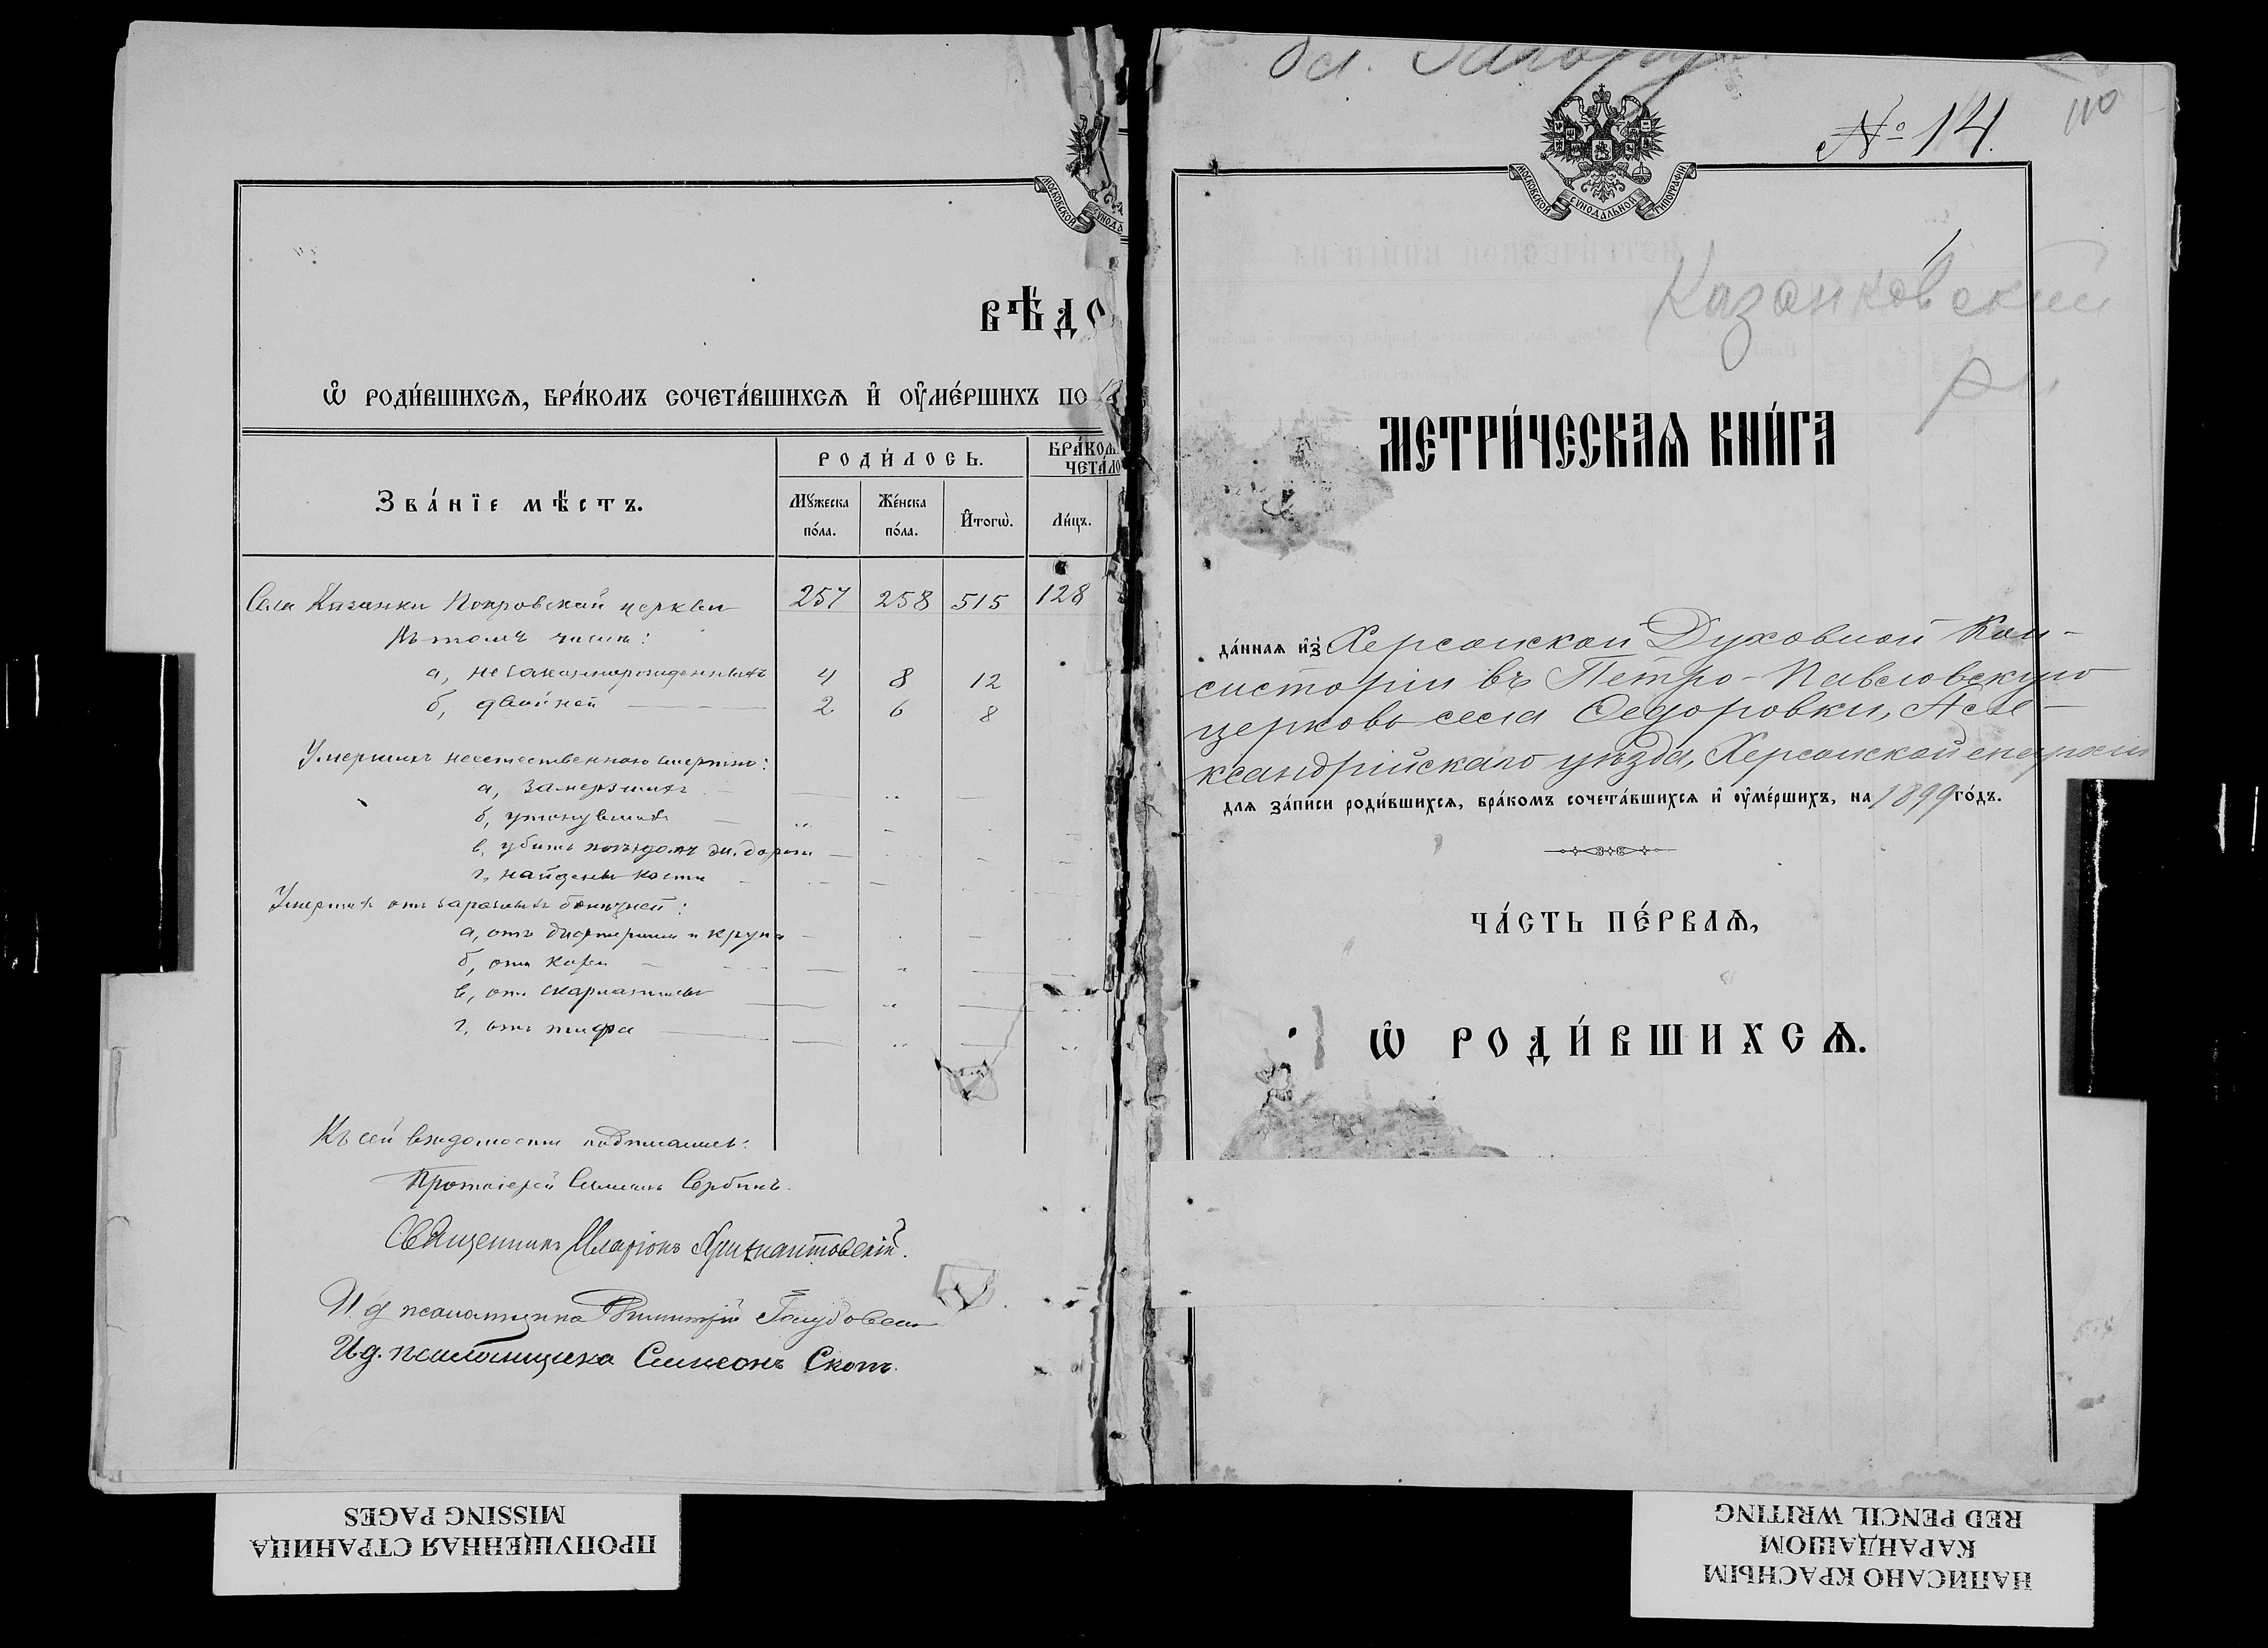 МОСКОВСКОЙ СѴНОДА
ВѢДО
Ѡ РОДИ́ВШИХСѦ, БРА́КОМЪ СОЧЕТА́ВШИХСѦ И҆ ОУ҆МЕ́РШИХЪ ПО
Зва́нїе мѣстъ.
РОДИ́ЛОСЬ.
БРА́КОМ
ЧЕТА́ЛО
Мꙋжеска по́ла.
Же́нска по́ла.
И҆тогѡ̀.
Ли́цъ.
Села Казанки Покровской церкви 257 258 515 128
Въ томъ числѣ:
а, незаконнорожденныхъ 4 8 12
б, двойней 2 6 8
Умершихъ неестественною смертію:
а, замерзшихъ
б, утонувшихъ
в, убитъ поѣздомъ ж. дороги
г, найдены кости
Умершихъ отъ заразныхъ болѣзней:
а, отъ дифтерита и крупа
б, отъ кори
в, отъ скарлатины
г, отъ тифа
Къ сей вѣдомости подписались:
Протоіерей Симеонъ Сербинъ.
Священникъ Иларіонъ
И д псаломщика Димитрій
И.д. псаломщика Симеонъ Скоп.
ПРОПУЩЕННАЯ СТРАНИЦА
MISSING PAGES
№ 14.
110
МОСКОВСКОЙ СѴНОДАЛЬНОЙ ТИПОГРАФІИ
Казанковский
р-н
МЕТРИ́ЧЕСКАѦ КНИ́ГА
да́нная и҆з Херсонской Духовной Кон-
систоріи въ Петро-Павловскую
церковь села Ѳедоровки, Але-
ксандрійскаго уѣзда, Херсонской епархіи
для за́писи роди́вшихся, бра́комъ сочета́вшихся и҆ оу҆ме́ршихъ, на 1899 го́дъ.
ЧА́СТЬ ПЕ́РВАѦ,
Ѡ РОДИ́ВШИХСѦ.
НАПИСАНО КРАСНЫМ
КАРАНДАШОМ
RED PENCIL WRITING